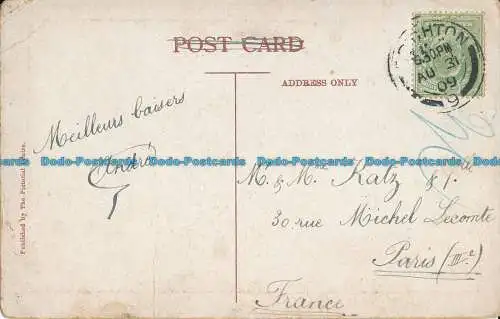 POST CARD
ADDRESS ONLY
BRIGHTON
5.30 PM
AU 31
09
Meilleurs baisers
André
M. & Mme Katz & fille
30 rue Michel Lecomte
Paris (IIIe)
France
Published by The Pictorial
Dodo-Postcards Dodo-Postcards Dodo-Postcards Dodo-Postcards Dodo-Postcards